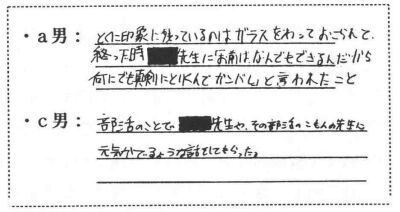 ・a男：とくに印象に残っているのはガラスをわっておこられて、
終った時 先生に「お前はなんでもできるんだから
何にでも真剣にとりくんでガンバレ」と言われたこと
・c男：部活のことで 先生や、その部活のこもんの先生に
元気がでるような話をしてもらった。